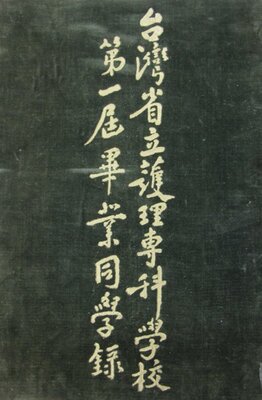 台灣省立護理專科學校
第一屆畢業同學錄